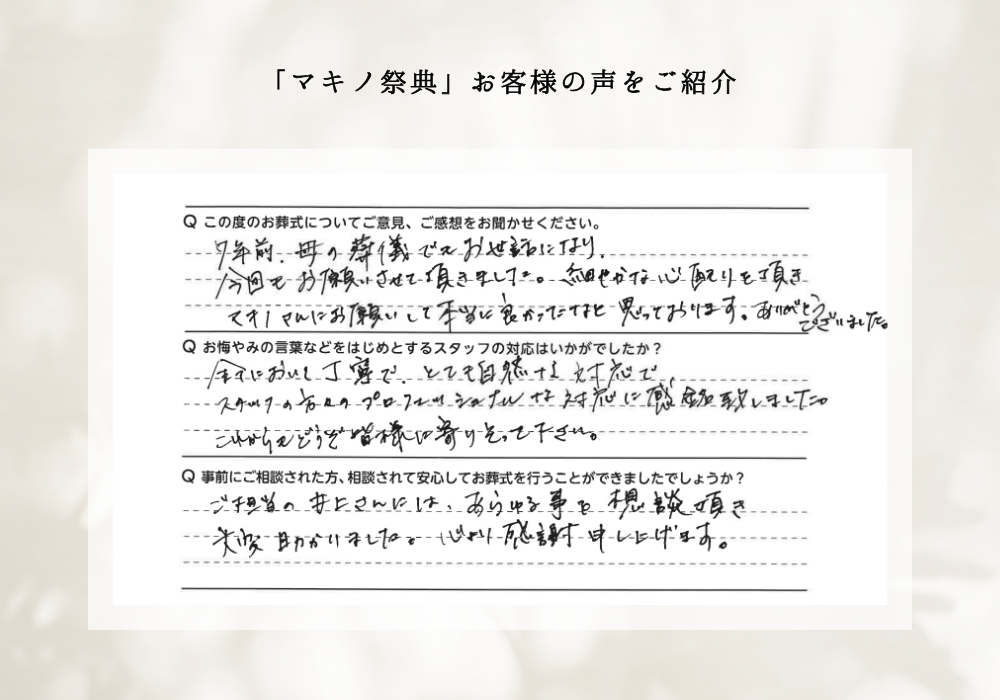 「マキノ祭典」お客様の声をご紹介
Q この度のお葬式についてご意見、ご感想をお聞かせください。
7年前、母の葬儀でもお世話になり、
今回もお願いさせて頂きました。細やかな心配りを頂き
マキノさんにお願いして本当に良かったなと思っております。ありがとう
ございました。
Q お悔やみの言葉などをはじめとするスタッフの対応はいかがでしたか？
全てにおいて丁寧で、とても自然な対応で
スタッフの方々のプロフェッショナルな対応に感動致しました。
これからもどうぞ皆様に寄りそって下さい。
Q 事前にご相談された方、相談されて安心してお葬式を行うことができましたでしょうか？
ご担当の井上さんには、あらゆる事を相談頂き
大変助かりました。心より感謝申し上げます。